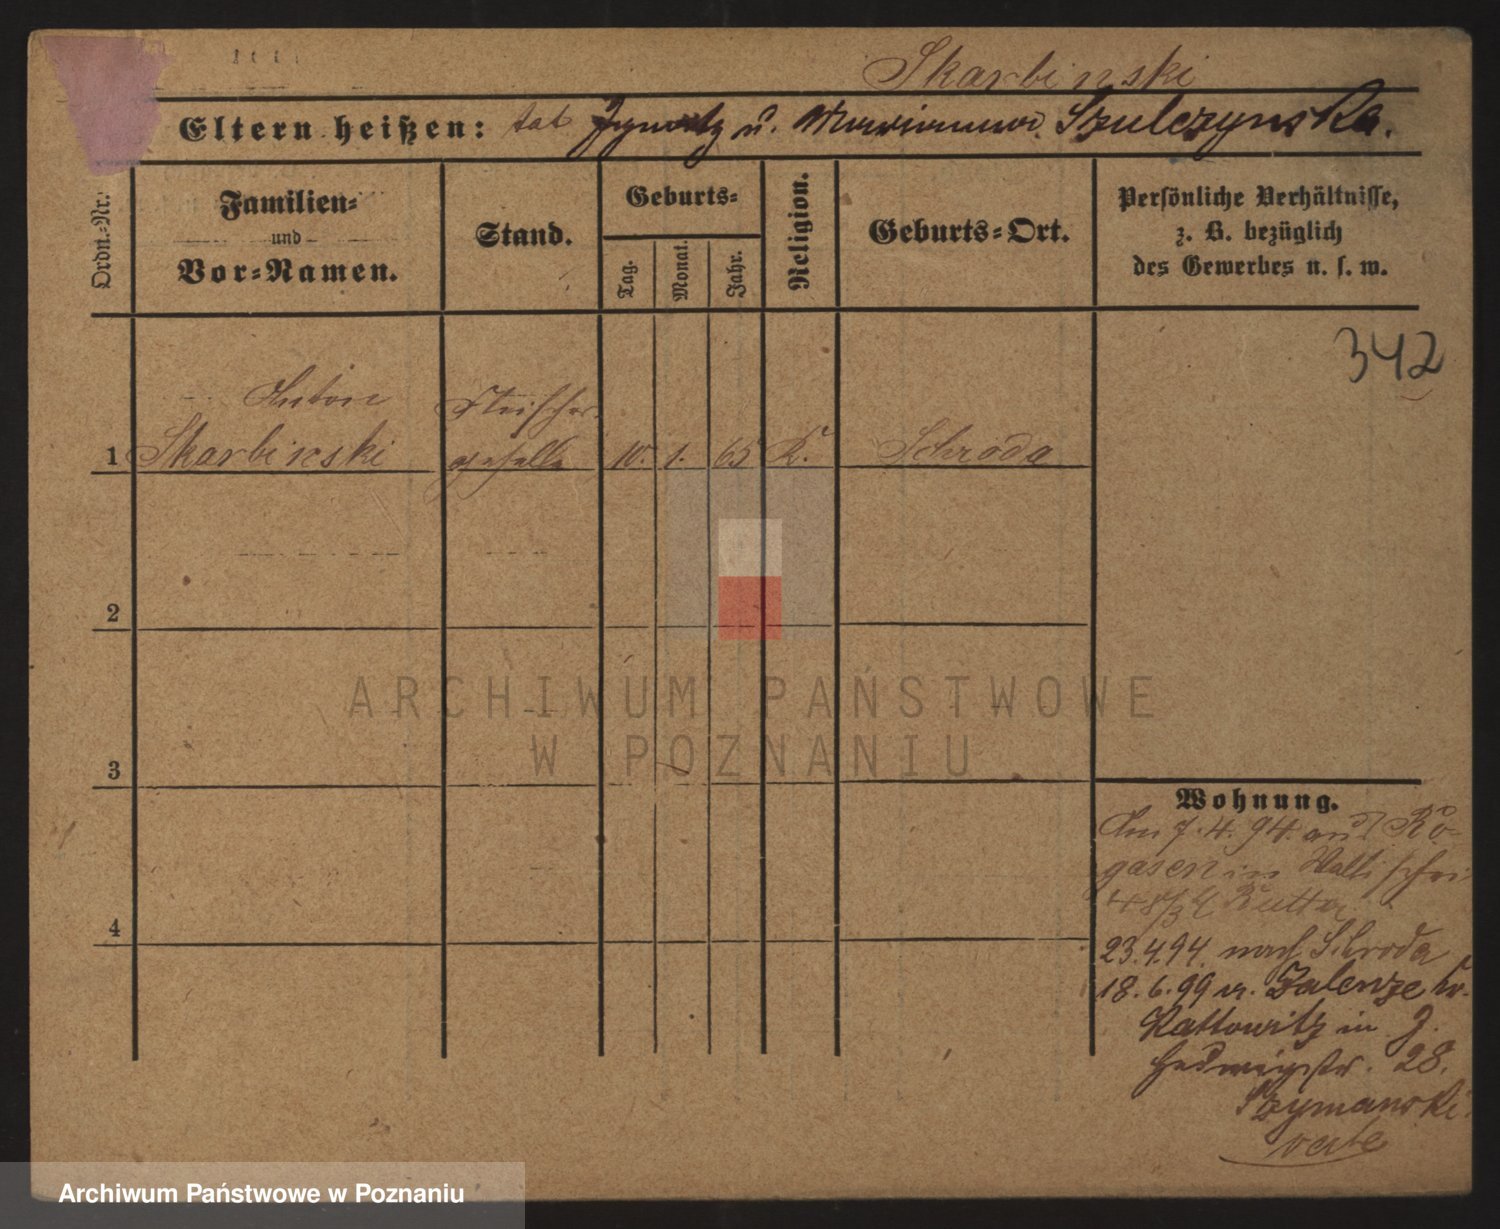 Skarbinski
Eltern heißen: kat Ignatz u. Marianna Szulczynska.
Ordn.-Nr.
Familien-
und
Vor-Namen.
Stand.
Geburts-
Tag.
Monat.
Jahr.
Religion.
Geburts-Ort.
Persönliche Verhältnisse,
z. B. bezüglich
des Gewerbes u. s. w.
342
Anton
Skarbinski
Fleischer-
geselle
1
10. 1. 65 K. Schroda
2
3
4
ARCHIWUM PAŃSTWOWE
W POZNANIU
Wohnung.
Am 7.4.94. aus Ro-
gasen in Wallischei
23.4.94. nach Schroda
18.6.99 v. Zalenze Kr.
Kattowitz in J.
Hedwigstr. 28.
Szymanski
verte
Archiwum Państwowe w Poznaniu